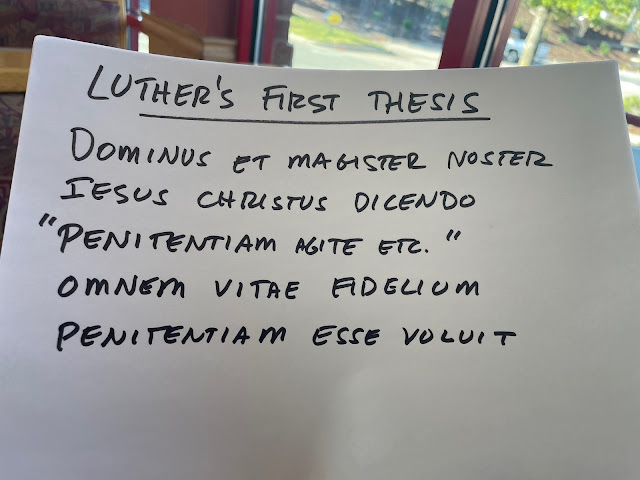 LUTHER'S FIRST THESIS
DOMINUS ET MAGISTER NOSTER
IESUS CHRISTUS DICENDO
"PENITENTIAM AGITE ETC."
OMNEM VITAE FIDELIUM
PENITENTIAM ESSE VOLUIT